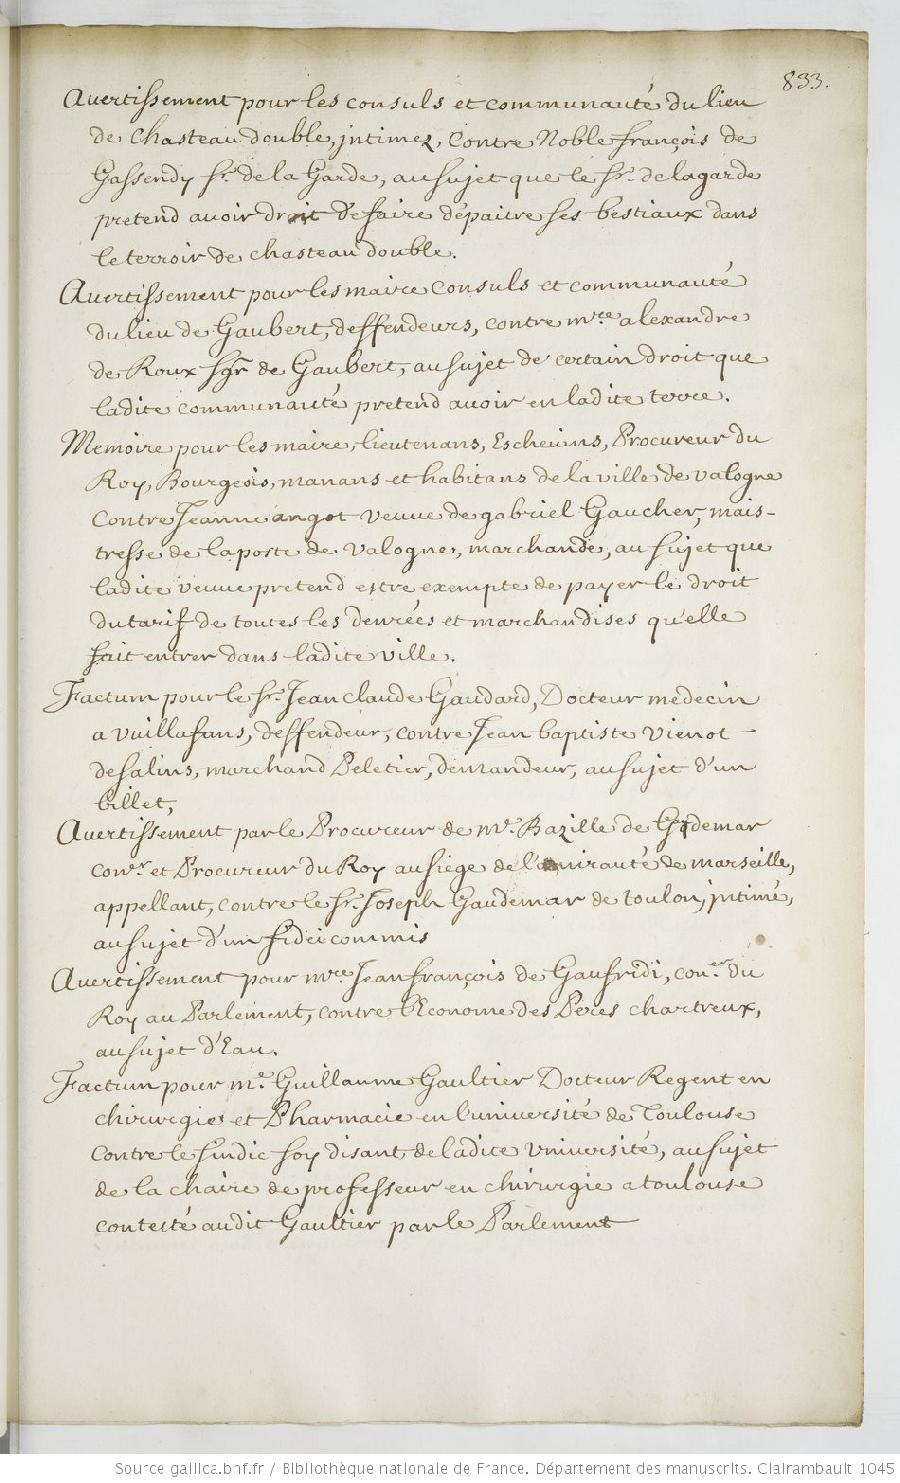 833.
Avertissement pour les consuls et communauté du lieu
de Chasteaudouble, intimez, Contre Noble françois de
Gassendy sr. de la Garde, au sujet que le sr. de lagarde
pretend avoir droit de faire dépaitre ses bestiaux dans
le terroir de chasteaudouble.
Avertissement pour les maire consuls et communauté
du lieu de Gaubert, deffendeurs, contre mre. alexandre
de Roux sgr de Gaubert, au sujet de certain droit que
ladite communauté pretend avoir en ladite terre.
Memoire pour les maire, lieutenans, Eschevins, Procureur du
Roy, Bourgeois, manans et habitans de la ville de valogne
Contre Jeanne angot veuve de gabriel Gaucher, mais-
tresse de la poste de valogne, marchande, au sujet que
ladite veuve pretend estre exempte de payer le droit
du tarif de toutes les denrées et marchandises qu'elle
fait entrer dans ladite ville.
Factum pour le sr. Jean Claude Gaudard, Docteur medecin
a vuillafans, deffendeur, contre Jean baptiste vienot
de salins, marchand Peletier, demandeur, au sujet d'un
billet,
Avertissement par le Procureur de mr. Bazille de Gademar
conr. et Procureur du Roy au siege de l'amirauté de marseille,
appellant, contre le sr. Joseph Gaudemar de toulon, intimé,
au sujet d'un fidei commis
Avertissement pour mre Jean françois de Gaufridi, coner. du
Roy au Parlement, contre l'Econome des Peres chartreux,
au sujet d'Eau.
Factum pour me. Guillaume Gaultier Docteur Regent en
chirurgie et Pharmacie en l'université de Toulouse
Contre le sindic soy disant de ladite université, au sujet
de la chaire de professeur en chirurgie a toulouse
contesté audit Gaultier par le Parlement
Source gallica.bnf.fr / Bibliothèque nationale de France. Département des manuscrits. Clairambault 1045